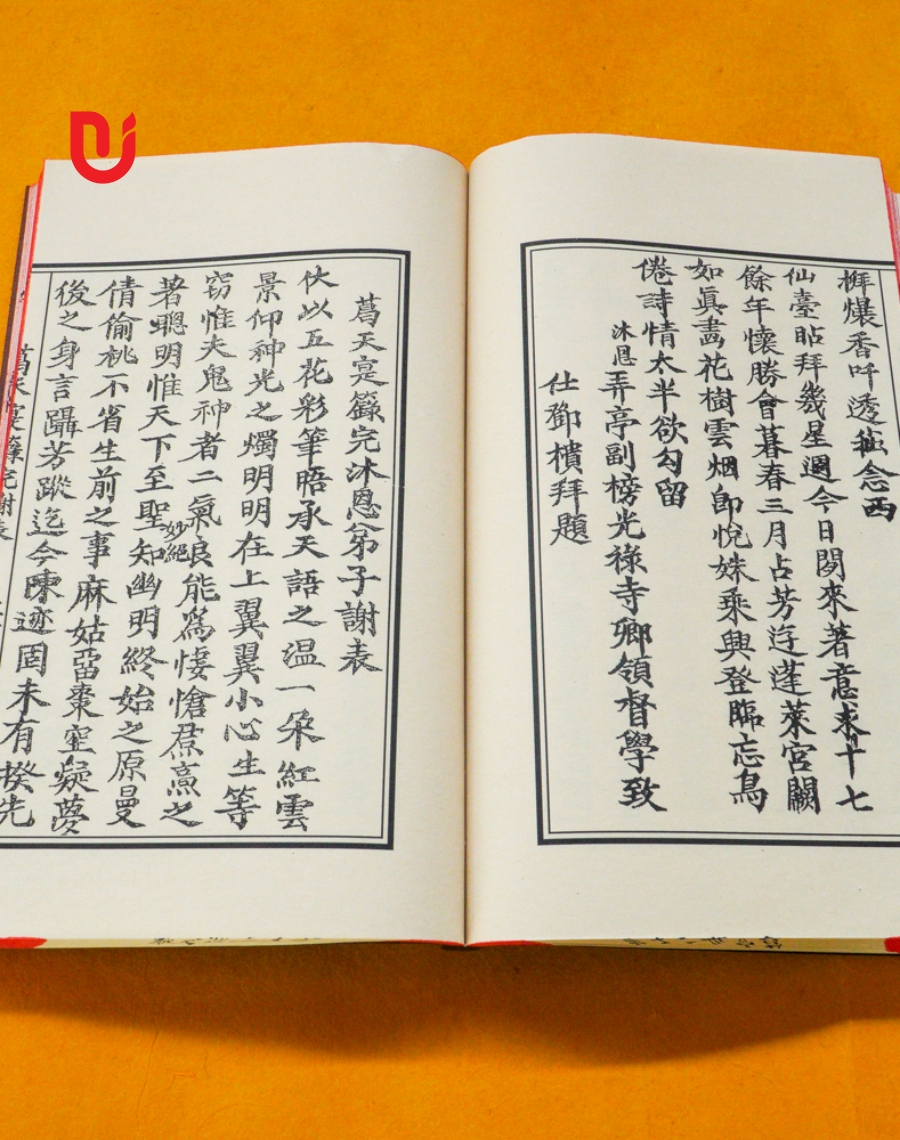 香吁透祉念西
仙臺跕拜幾星週今日閱來著意求十七
餘年懷勝會暮春三月占芳逕蓬萊宮闕
如眞畵花樹雲烟卽悅姝乘興登臨忘烏
倦詩情太半欲勾留
沐恩弄亭副榜光祿寺卿領督學致
仕鄧檟拜題
葛天寔籙完沐恩弟子謝表
伏以五花彩筆晤承天語之温一朶紅雲
景仰神光之燭明明在上翼翼小心生等
窃惟夫鬼神者二氣良能爲悽愴焄熹之
著聰明惟天下至聖妙絕知幽明終始之原曼
倩偷桃不省生前之事麻姑留棗空疑夢
後之身言躡芳蹤迄今陳迹固未有揆先